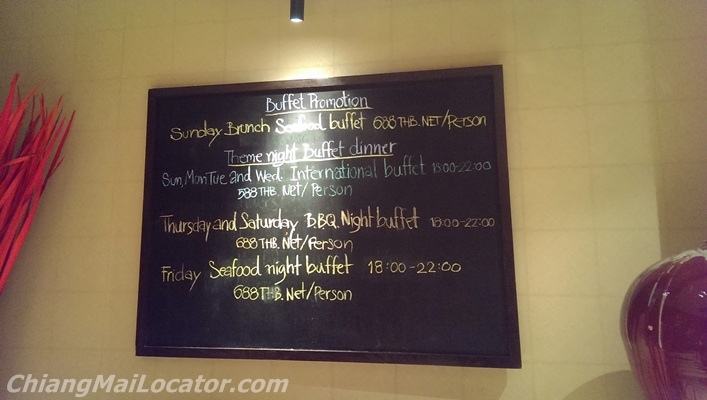 Buffet Promotion
Sunday Brunch Seafood buffet 688 THB. NET/Person
Theme night Buffet dinner
Sun, Mon Tue and Wed. International buffet 18:00-22:00
588 THB. Net/Person
Thursday and Saturday B.B.Q. Night buffet 18:00-22:00
688 THB. Net/Person
Friday Seafood night buffet 18:00-22:00
688 THB. Net/Person
ChiangMaiLocator.com